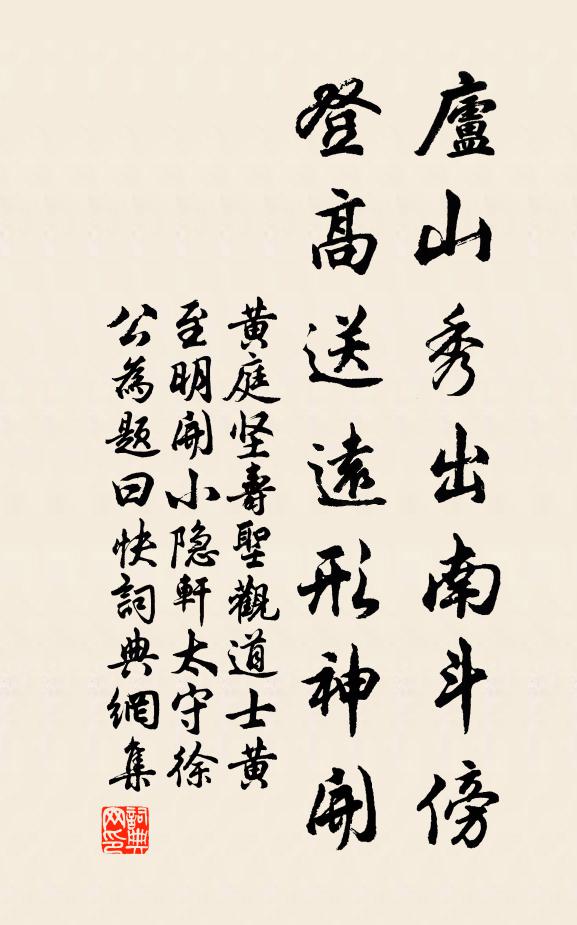 廬山秀出南斗傍
登高送遠形神開
黄庭坚壽聖觀道士黄
至明開小隐軒太守徐
公為题曰快詞典網集
詞典网印